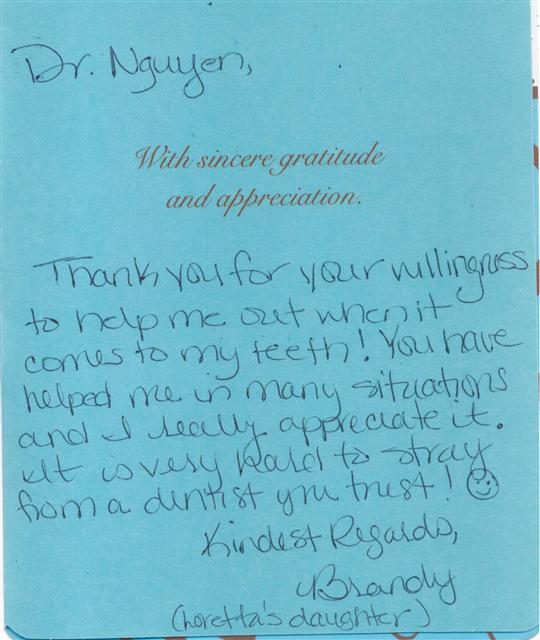 Dr. Nguyen,
With sincere gratitude
and appreciation.
Thank you for your willingness
to help me out when it
comes to my teeth! You have
helped me in many situations
and I really appreciate it.
It is very hard to stray
from a dentist you trust!
Kindest Regards,
Brandy
(Loretta's daughter)